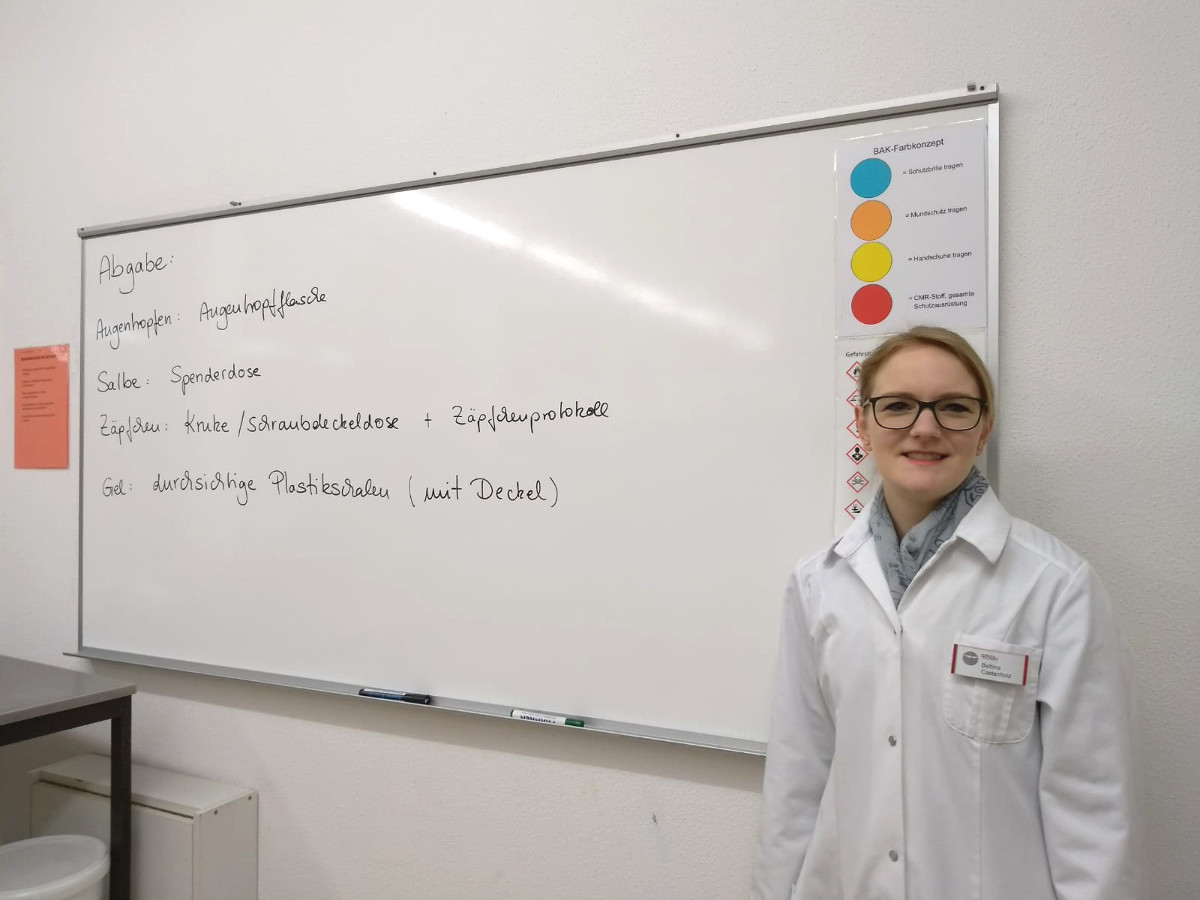 Abgabe:
Augentropfen: Augentropfflasche
Salbe: Spenderdose
Zäpfchen: Kruke / Schraubdeckeldose + Zäpfchenprotokoll
Gel: durchsichtige Plastikschalen (mit Deckel)
BAK-Farbkonzept
= Schutzbrille tragen
= Mundschutz tragen
= Handschuhe tragen
= CMR-Stoff, gesamte
Schutzausrüstung
Bettina
Castenholz